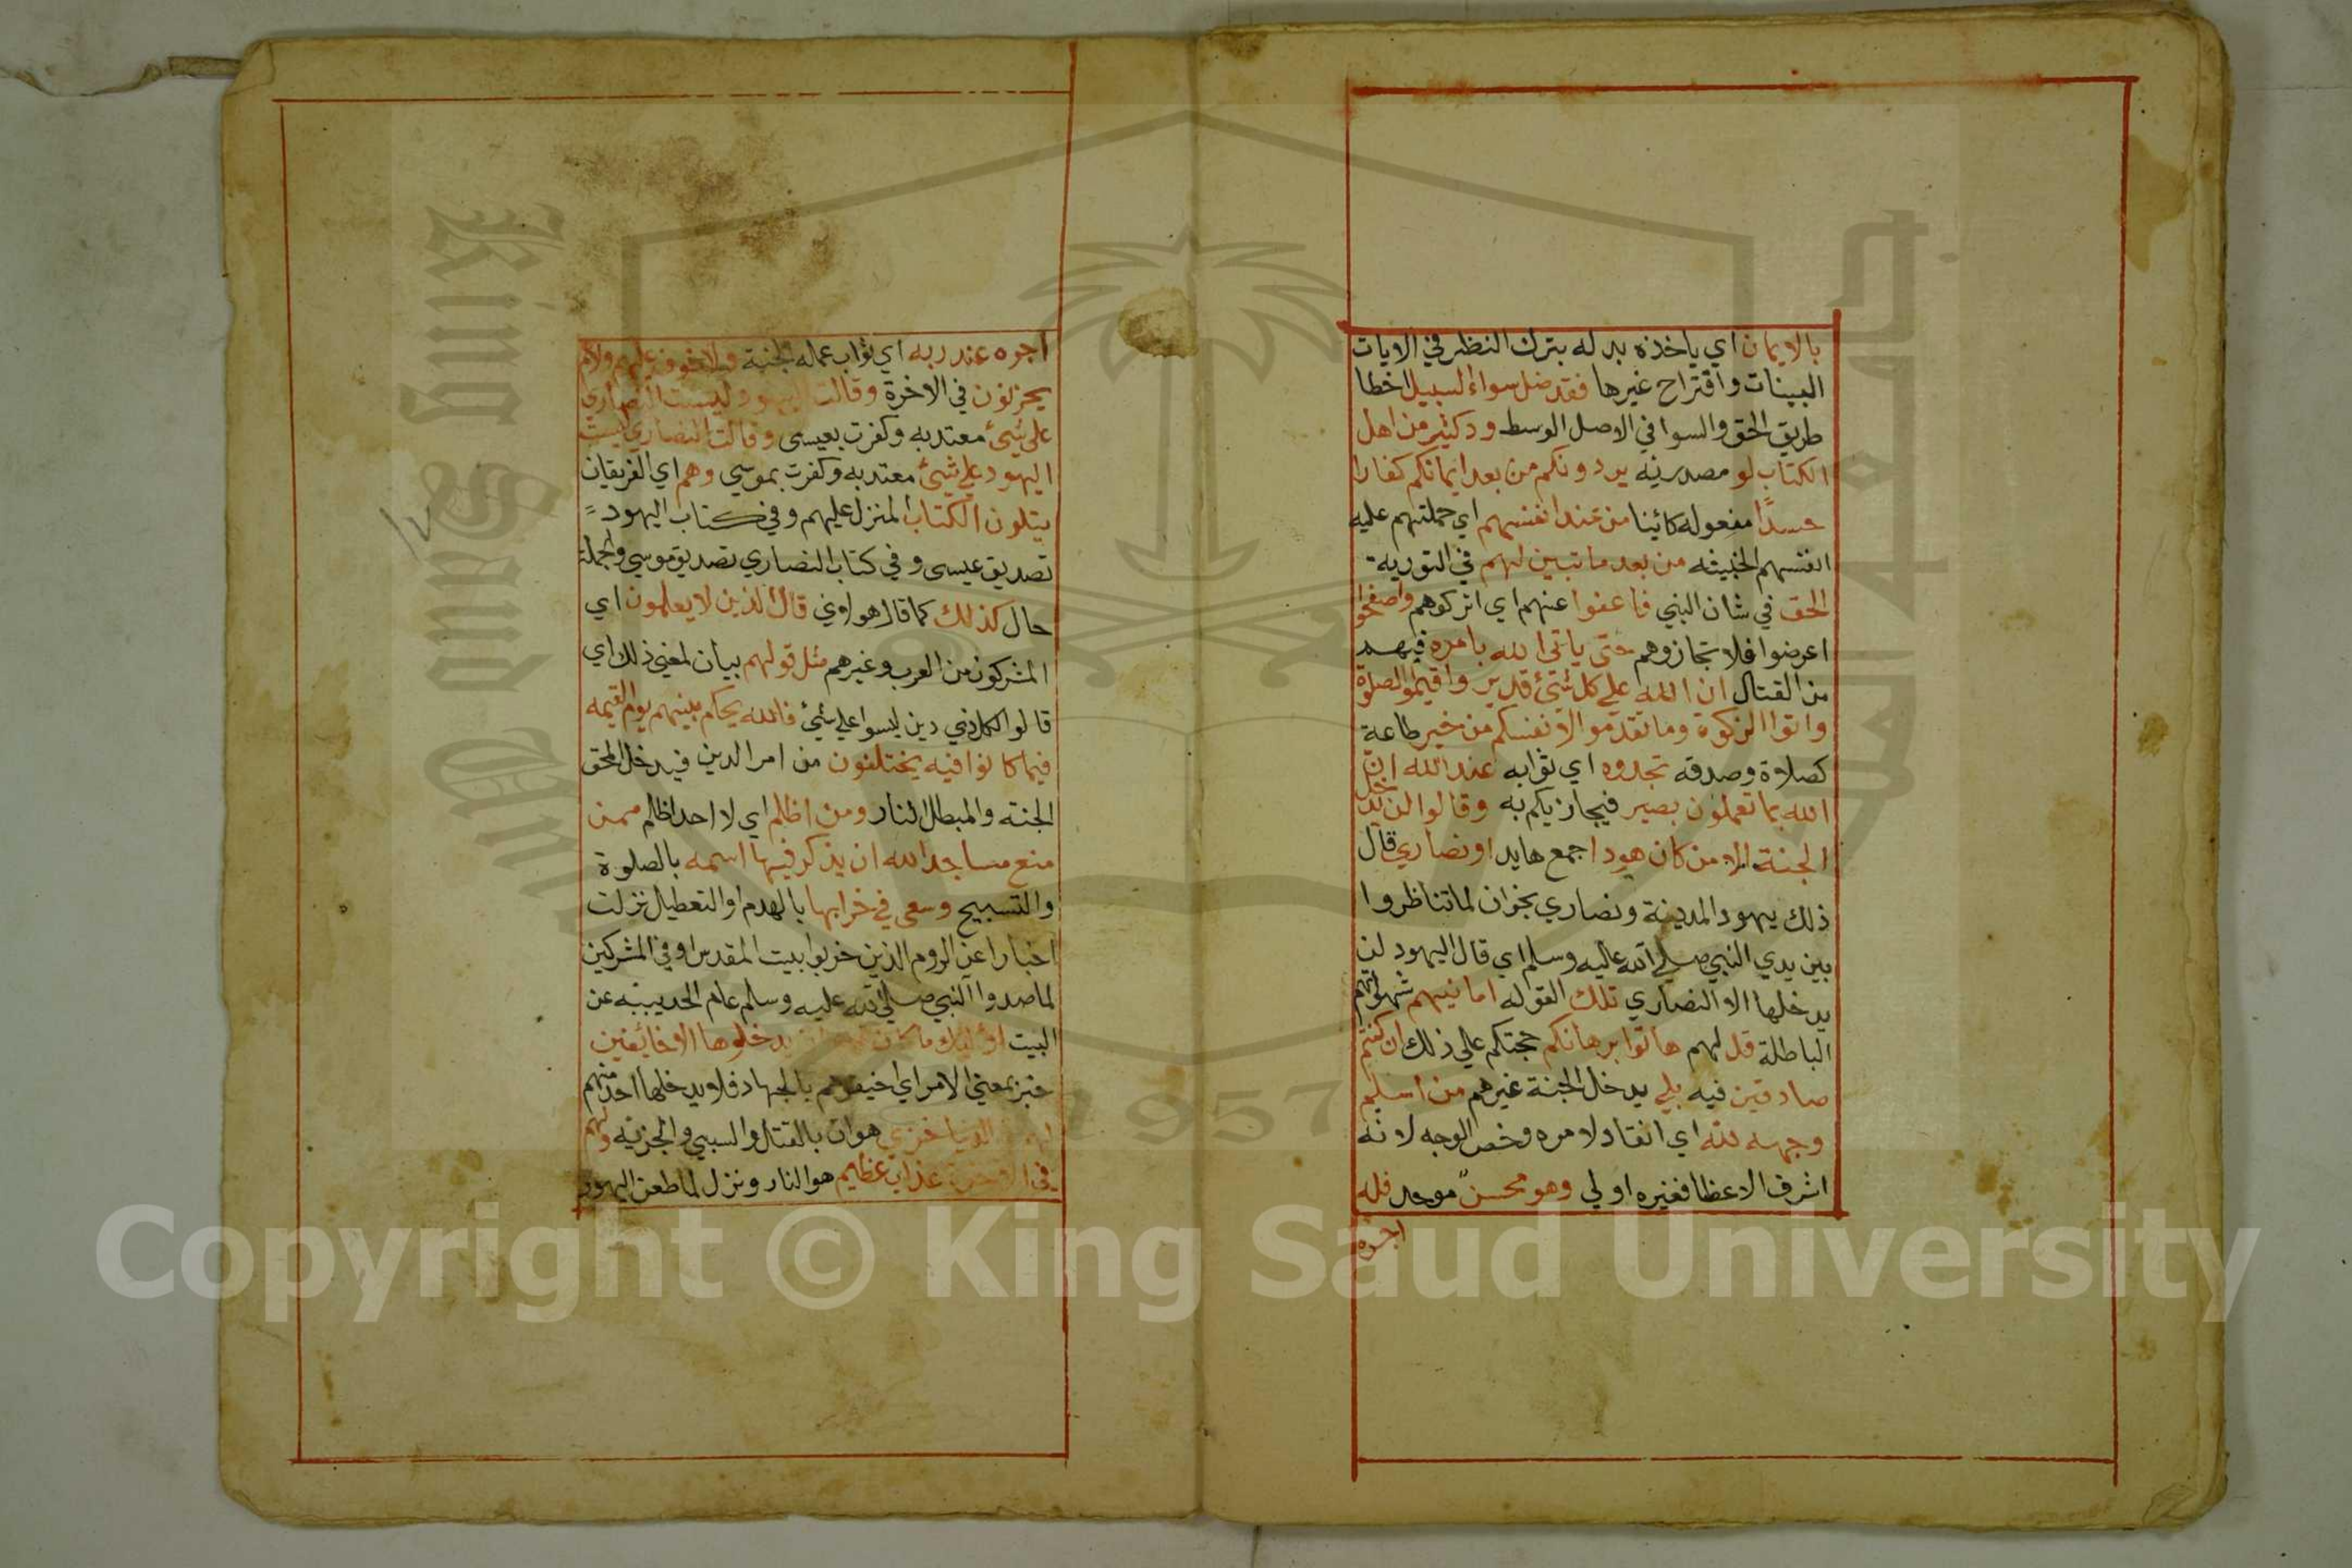 بالايمان اي ياخذه بدله بترك النظر في الايات
البينات واقتراح غيرها فقد ضل سواء السبيل اخطا
طريق الحق والسوا في الاصل الوسط ود كثير من اهل
الكتاب لو مصدريه يردونكم من بعد ايمانكم كفارا
حسدًا مفعوله كائينا من عند انفسهم اي حملتهم عليه
انفسهم الخبيثه من بعد ما تبين لهم في التورية
الحق في شان النبي فاعفوا عنهم اي اتركوهم واصفحوا
اعرضوا فلا تجازوهم حتى ياتى الله بامره فيهم
من القتال ان الله علي كل شيئ قدير واقيموا الصلوة
واتوا الزكوة وما تقدموا لانفسكم من خير طاعة
كصلاة وصدقه تجدوه اي ثوابه عند الله ان
الله بما تعملون بصير فيجازيكم به وقالوا لن يدخل
الجنة الا من كان هودا جمع هايد او نصاري قال
ذلك يهود المدينة ونصاري نجران لما تناظروا
بين يدي النبي صلي الله عليه وسلم اي قال اليهود لن
يدخلها الا النصاري تلك القوله امانيهم شهواتهم
الباطلة قل لهم هاتوا برهانكم حجتكم علي ذلك ان كنتم
صادقين فيه بلي يدخل الجنة غيرهم من اسلم
وجهه لله اي انقاد لامره وخص الوجه لانه
اشرف الاعظا فغيره اولي وهو محسن موحد فله
اجره
اجره عند ربه اي ثواب عمله الجنة ولا خوف عليهم ولا هم
يحزنون في الاخرة وقالت اليهود ليست النصاري
علي شيئ معتد به وكفرت بعيسى وقالت النصاري ليست
اليهود علي شيئ معتد به وكفرت بموسي وهم اي الفريقان
يتلون الكتاب المنزل عليهم وفي كتاب اليهود
تصديق عيسى وفي كتاب النصاري تصديق موسي والجملة
حال كذلك كما قال هولاوني قال الذين لا يعلمون اي
المشركون من العرب وغيرهم مثل قولهم بيان لمعني ذلك اي
قالوا لكل ذي دين ليسوا علي شيئ فالله يحكم بينهم يوم القيمه
فيما كانوا فيه يختلفون من امر الدين فيدخل المحق
الجنه والمبطل النار ومن اظلم اي لا احد اظلم ممن
منع مساجد الله ان يذكر فيها اسمه بالصلوة
والتسبيح وسعى في خرابها بالهدم او التعطيل نزلت
اخبارا عن الروم الذين خربوا بيت المقدس او في المشركين
لما صدوا النبي صلي الله عليه وسلم عام الحديبيه عن
البيت اوليك ما كان لهم ان يدخلوها الا خائفين
خبر بمعني الامر اي اخيفوهم بالجهاد فلا يدخلها احد منهم
لهم في الدنيا خزي هوان بالقتل والسبي والجزيه ولهم
في الاخرة عذاب عظيم هو النار ونزل لما طعن اليهود
King Saud Univ
1957
Copyright © King Saud University